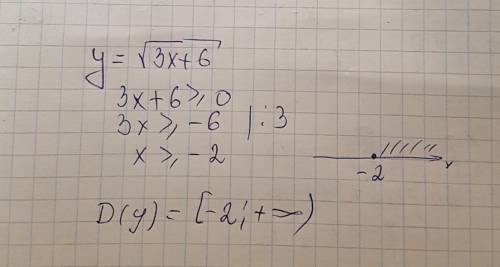 y = √3x+6
3x+6 ⩾ 0
3x ⩾ -6 | : 3
x ⩾ -2
-2 x
D(y) = [-2; +∞)